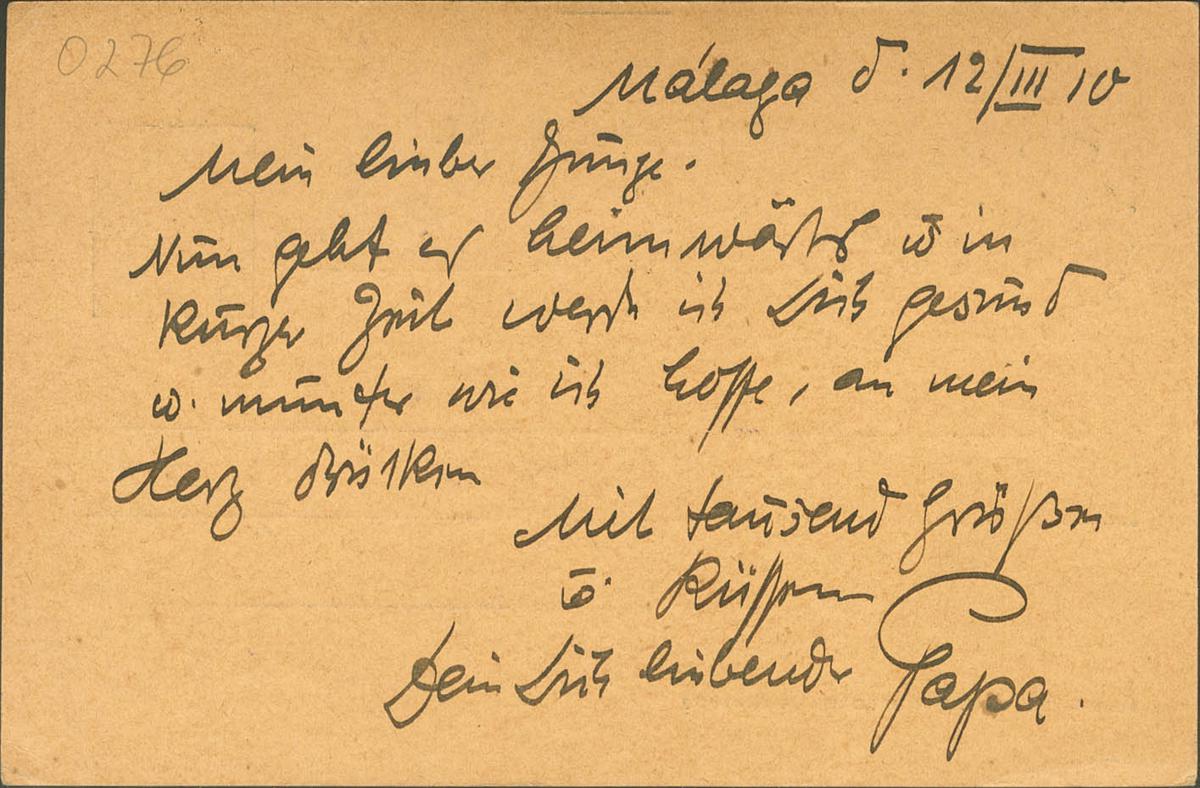 0276
Málaga d. 12/III 10
Mein lieber Junge.
Nun geht es heimwärts u. in
kurzer Zeit werde ich Dich gesund
u. munter wie ich hoffe, an mein
Herz drücken
Mit tausend Grüßen
u. Küssen
Dein Dich liebender Papa.